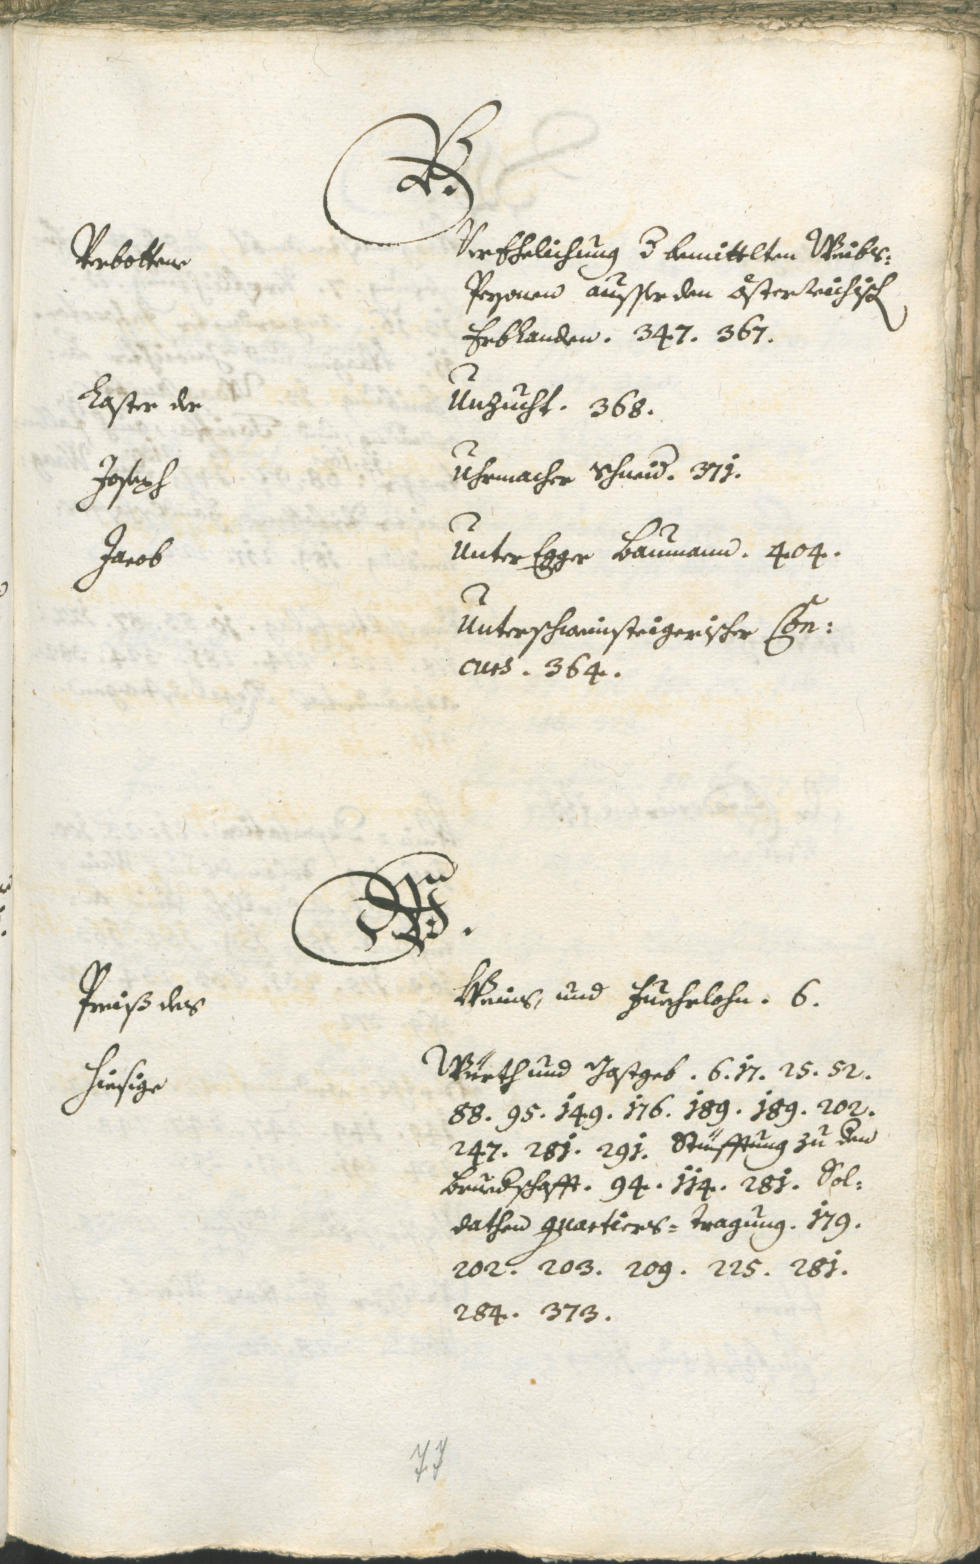 V.
Verbottene Verehelichung bemittelten Weibs=
Persohnen ausser den österreichisch
Erblanden. 347. 367.
Laster der Unzucht. 368.
Joseph Uhrmacher Schmid. 371.
Jacob Unter Egger Baumann. 404.
Unterschweinsteigerischer Con=
curs. 364.
W.
Preiß des Weins, und Fuehrlohn. 6.
Hiesige Würth und Gastgeb. 6. 17. 25. 52.
88. 95. 149. 176. 189. 189. 202.
247. 281. 291. Stüfftung zu den
Bruedschafft. 94. 114. 281. Sol=
dathen quartiers=tragung. 179.
202. 203. 209. 225. 281.
284. 373.
77